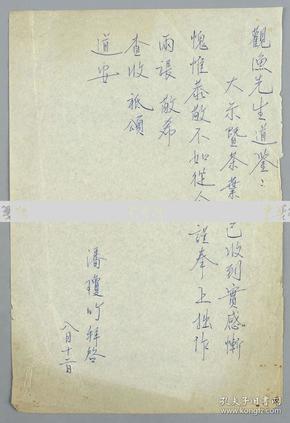 觀漁先生道鑒：
大示暨茶葉已收到實感慚
愧惟恭敬不如從命謹奉上拙作
兩張敬希
查收祗頌
道安
潘瓊昉拜啓
八月十二日
孔夫子旧书网